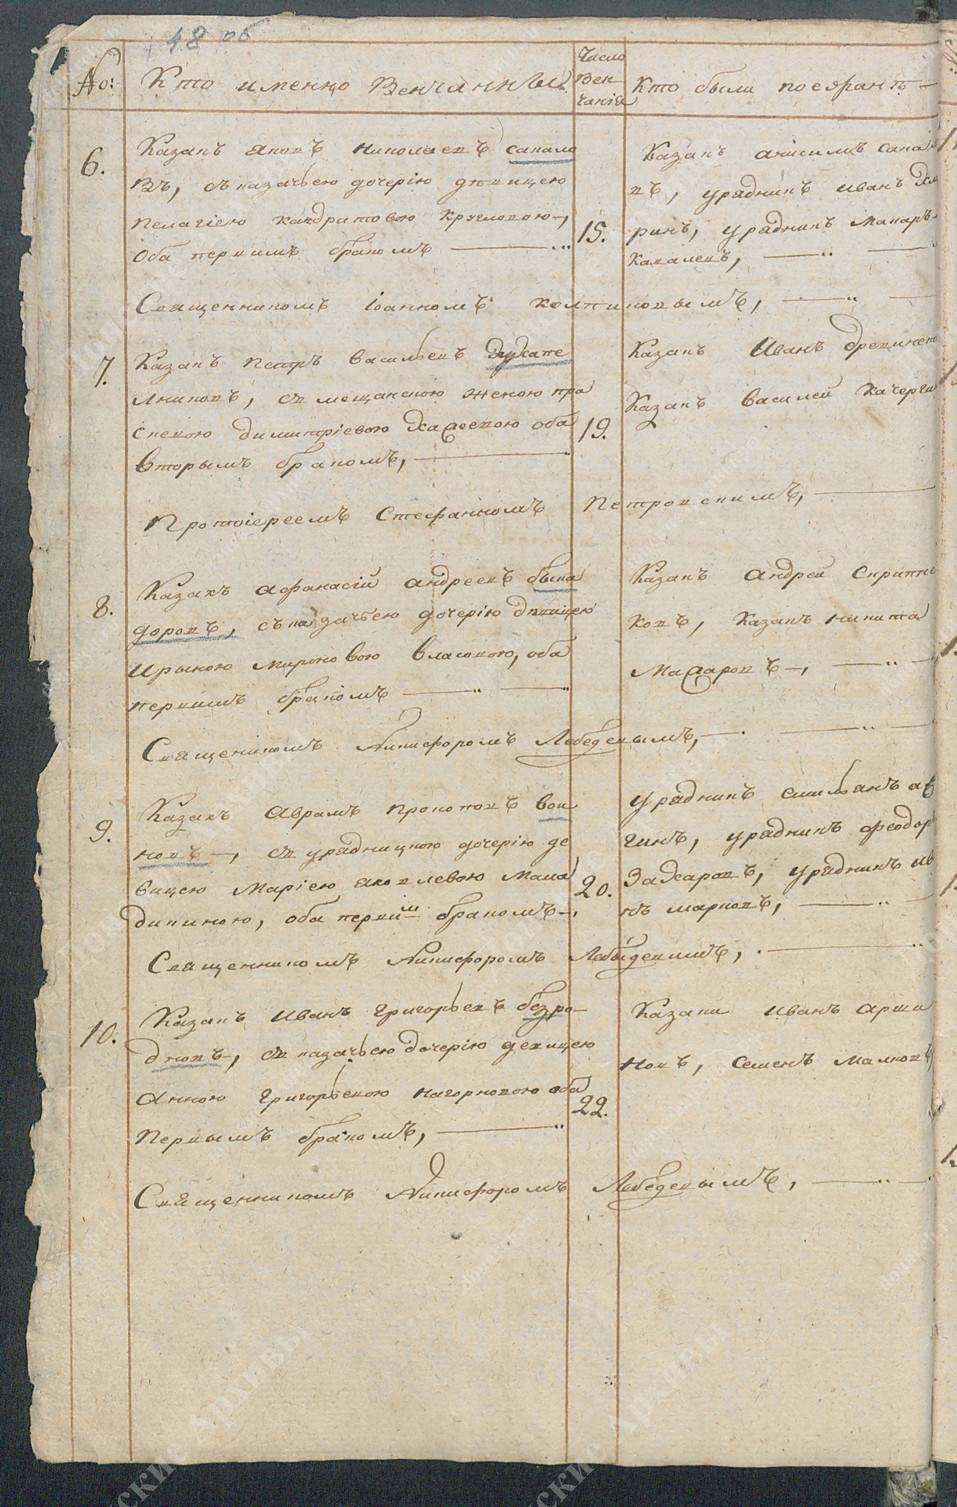 48 об
No: Кто именно Венчанны Число Вен- чанія Кто были поезжанѣ
6. Казакъ Яковъ Николаевъ Сапало
въ, съ казачьею дочерію дѣвицею
Пелагіею Кандратовою Кругловою,
оба первимъ бракомъ 15.
Казакъ Анисимъ Сапа
въ, урядникъ Иванъ
ринъ, урядникъ Макаръ
Кавалевъ,
Священникомъ Іоанномъ
7. Казакъ Петръ Васильевъ
лниковъ, съ мещанскою женою Пра
сковею Димитріевою оба 19.
вторымъ бракомъ,
Казакъ Иванъ
Казакъ Василей Качерги
Протоіереемъ Стефанномъ Петровскимъ,
8. Казакъ Афанасій Андреевъ Быка
доровъ, съ казачьею дочерію дѣвицею
Ирыною Мироновою Власовою, оба
первимъ бракомъ
Казакъ Андрей Скрипни
ковъ, Казакъ Никита
Священникомъ Никифоромъ Лебедевымъ,
9. Казакъ Аврамъ Прокоповъ Вои
новъ, съ урядницкою дочерію де
вицею Маріею Яковлевою Мала
дикиною, оба первим бракомъ, 20.
Урядникъ
гинъ, урядникъ Феодор
Захаровъ, урядникъ Ив
нъ Марковъ,
Священникомъ Никифоромъ Лебыдевимъ,
10. Казакъ Иванъ Григорьевъ Безро
дновъ, съ казачьею дочерію девицею
Анною Григорьевою Нагорновою оба 22.
Первымъ бракомъ,
Казаки Иванъ Арши
новъ, Семенъ Малковъ
Священникомъ Никифоромъ Лебедевымъ,